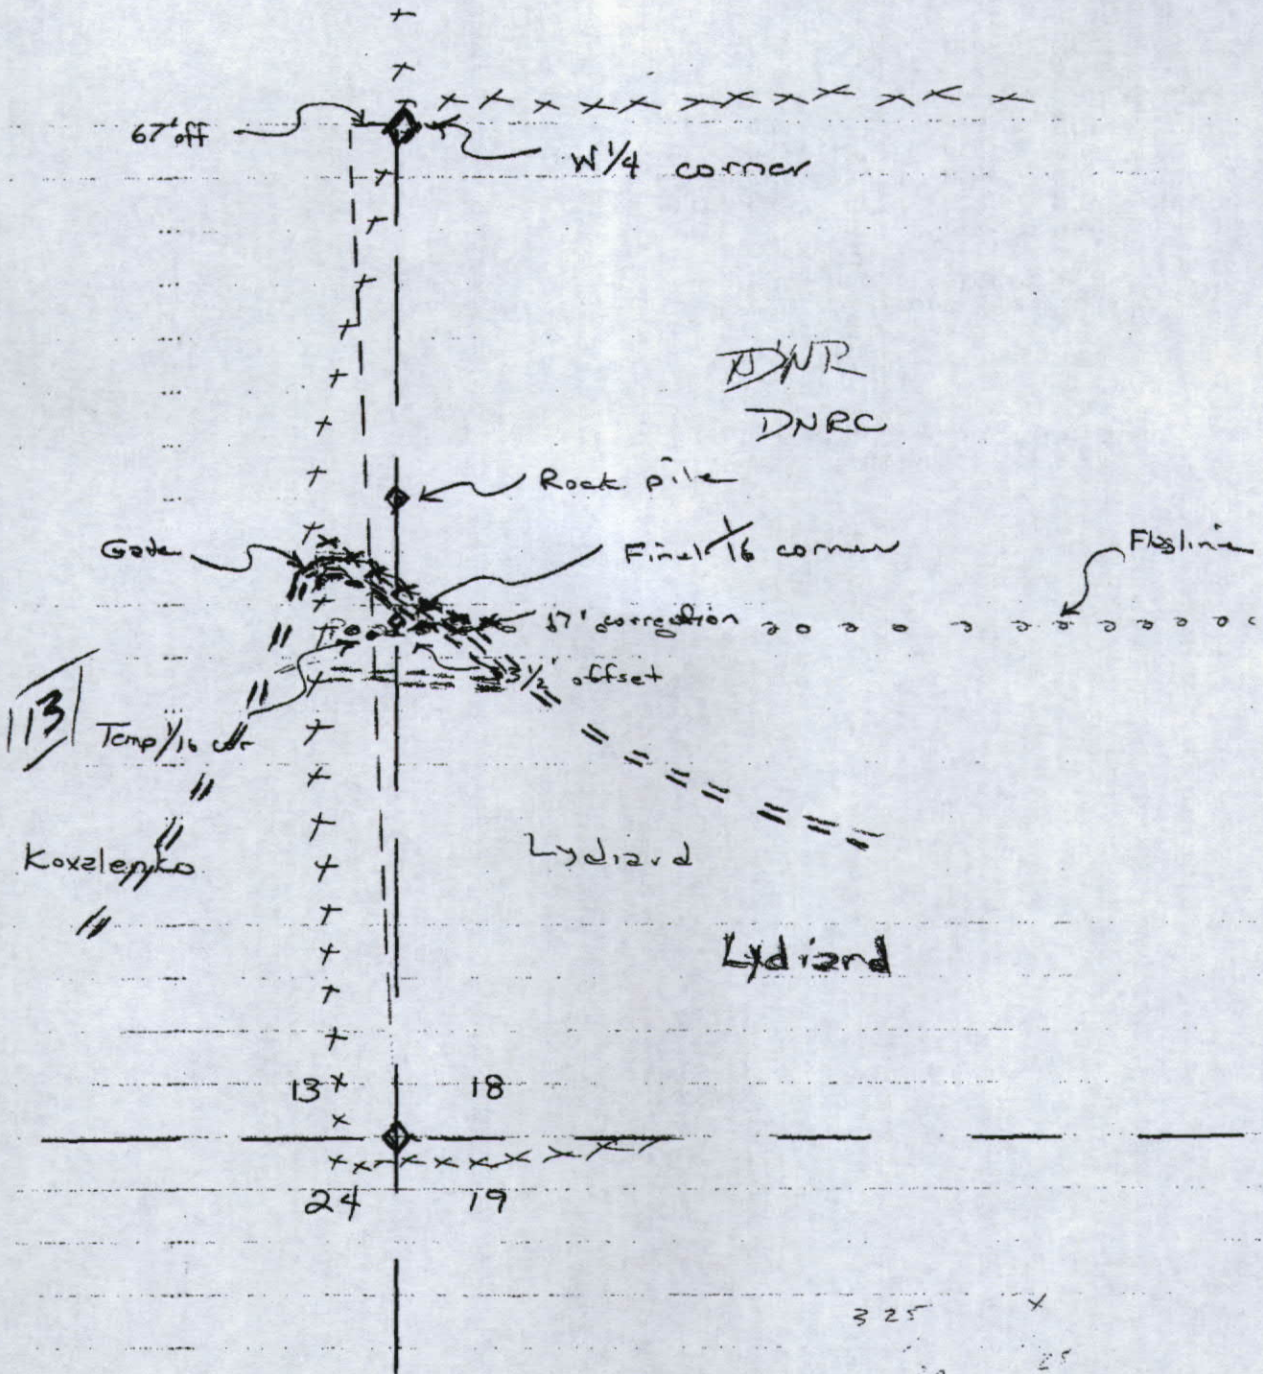 67' off
W 1/4 corner
DNR
DNRC
Rock pile
Gate
Final 1/16 corner
Flagline
17' correction
Road
3 1/2' offset
113
Temp 1/16 cor
Kovalenko
Lydiard
Lydiard
13
18
24
19
325
x
25